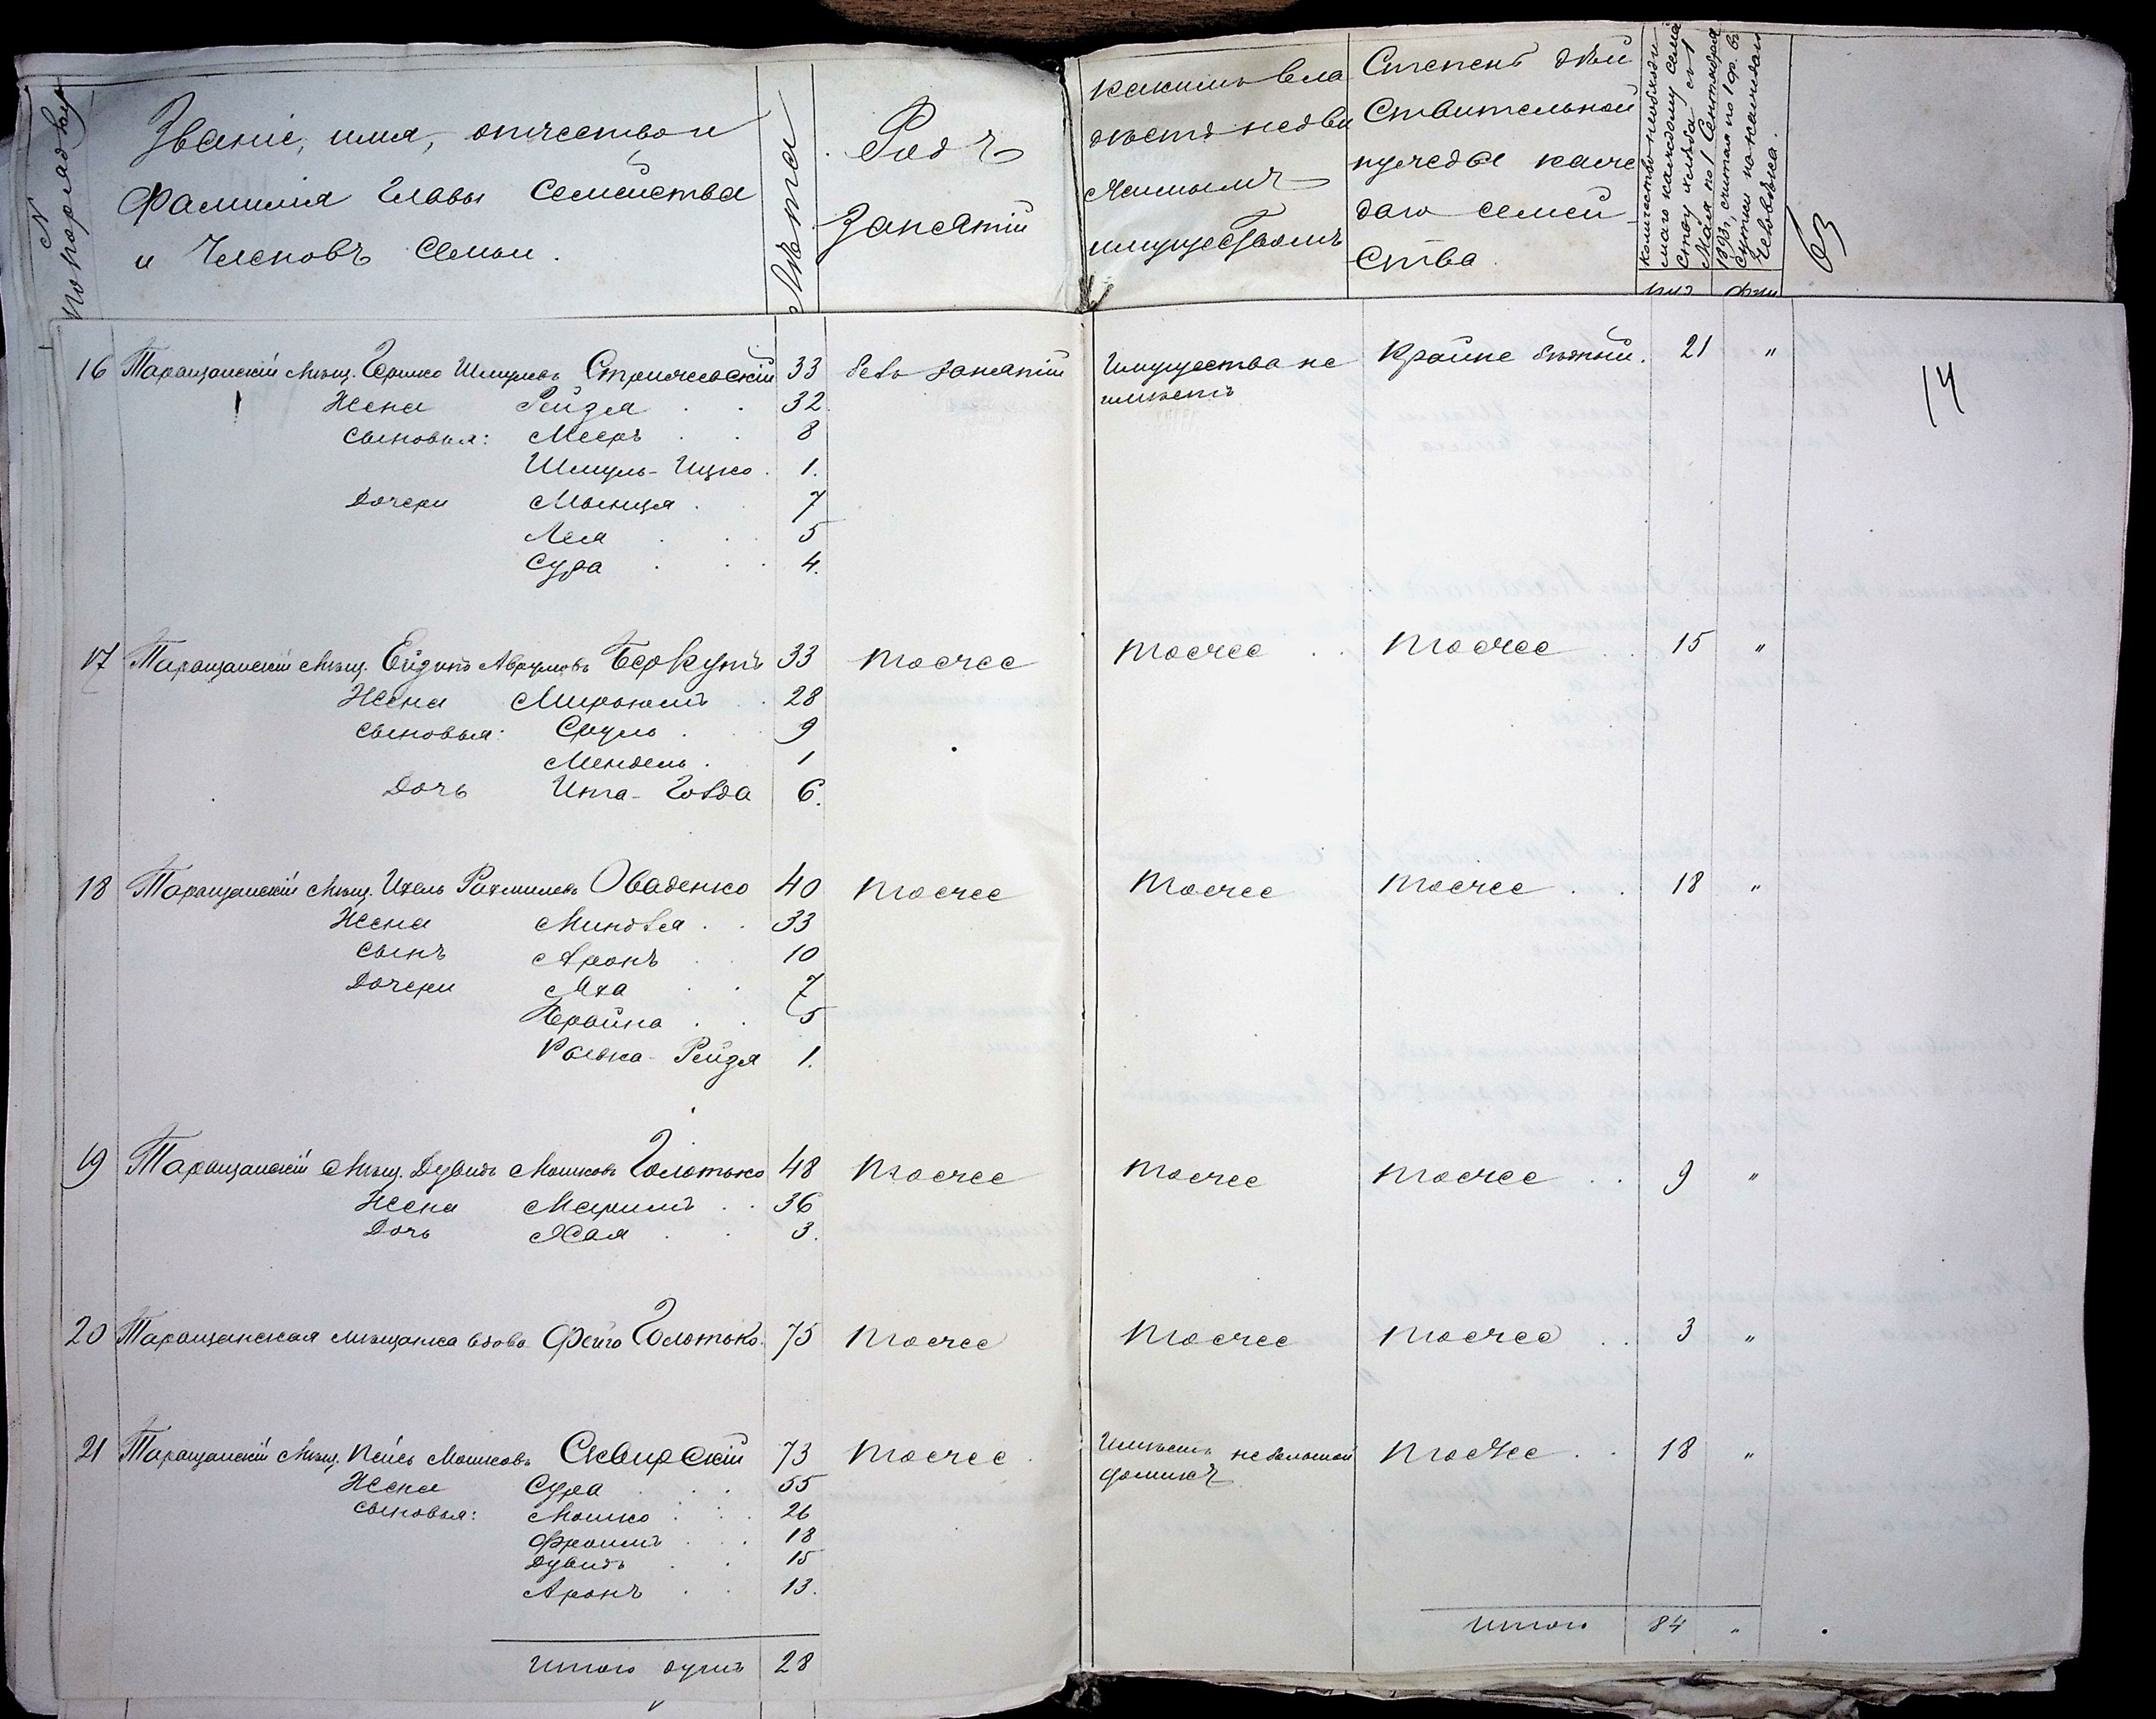 N по порядку
Званіе, имя, отчество и
фамилія главы семейства
и членовъ семьи.
Лѣта
Родъ
занятій
какимъ вла
дѣетъ недви
жимымъ
имуществомъ
Степень дѣй
ствительной
нужды каж
даго семей
ства
количество необходи
маго каждому семей
ству хлѣба съ 1
Мая по 1 Сентября
1893 г., считая по 1 ф. въ
сутки на каждаго
человѣка.
пуд фун
63
14
16 Таращанскій мѣщ. Гершко Шмулевъ Стрижевскій 33 безъ занятій Имущества не Крайне бѣдный. 21 "
имѣетъ
Жена Рейзля 32.
Сыновья: Мееръ 8
Шмуль-Ицко 1.
Дочери Мынця 7
Лея 5
Сура 4.
17 Таращанскій мѣщ. Аврумовъ Беркунъ 33 тоже тоже тоже 15 "
Жена 28
сыновья: Сруль 9
Мендель 1
Дочь Ита-Голда 6.
18 Таращанскій мѣщ. Ихель Рахмилевъ Оваденко 40 тоже тоже тоже 18 "
Жена Миндля 33
сынъ Аронъ 10
Дочери 7
Брайна 5
Рейзя 1.
19 Таращанскій мѣщ. Дувидъ Мошковъ Голотько 48 тоже тоже тоже 9 "
Жена Маримъ 36
Дочь Хая 3.
20 Таращанская мѣщанка вдова Фейга Голотько. 75 тоже тоже тоже 3 "
21 Таращанскій мѣщ. Пейсъ Мошковъ Сквирскій 73 тоже Имѣетъ небольшой тоже 18 "
домикъ
Жена Сура 55
сыновья: Мошко 26
Фроимъ 18
Дувидъ 15
Аронъ 13.
Итого 84 "
Итого душъ 28